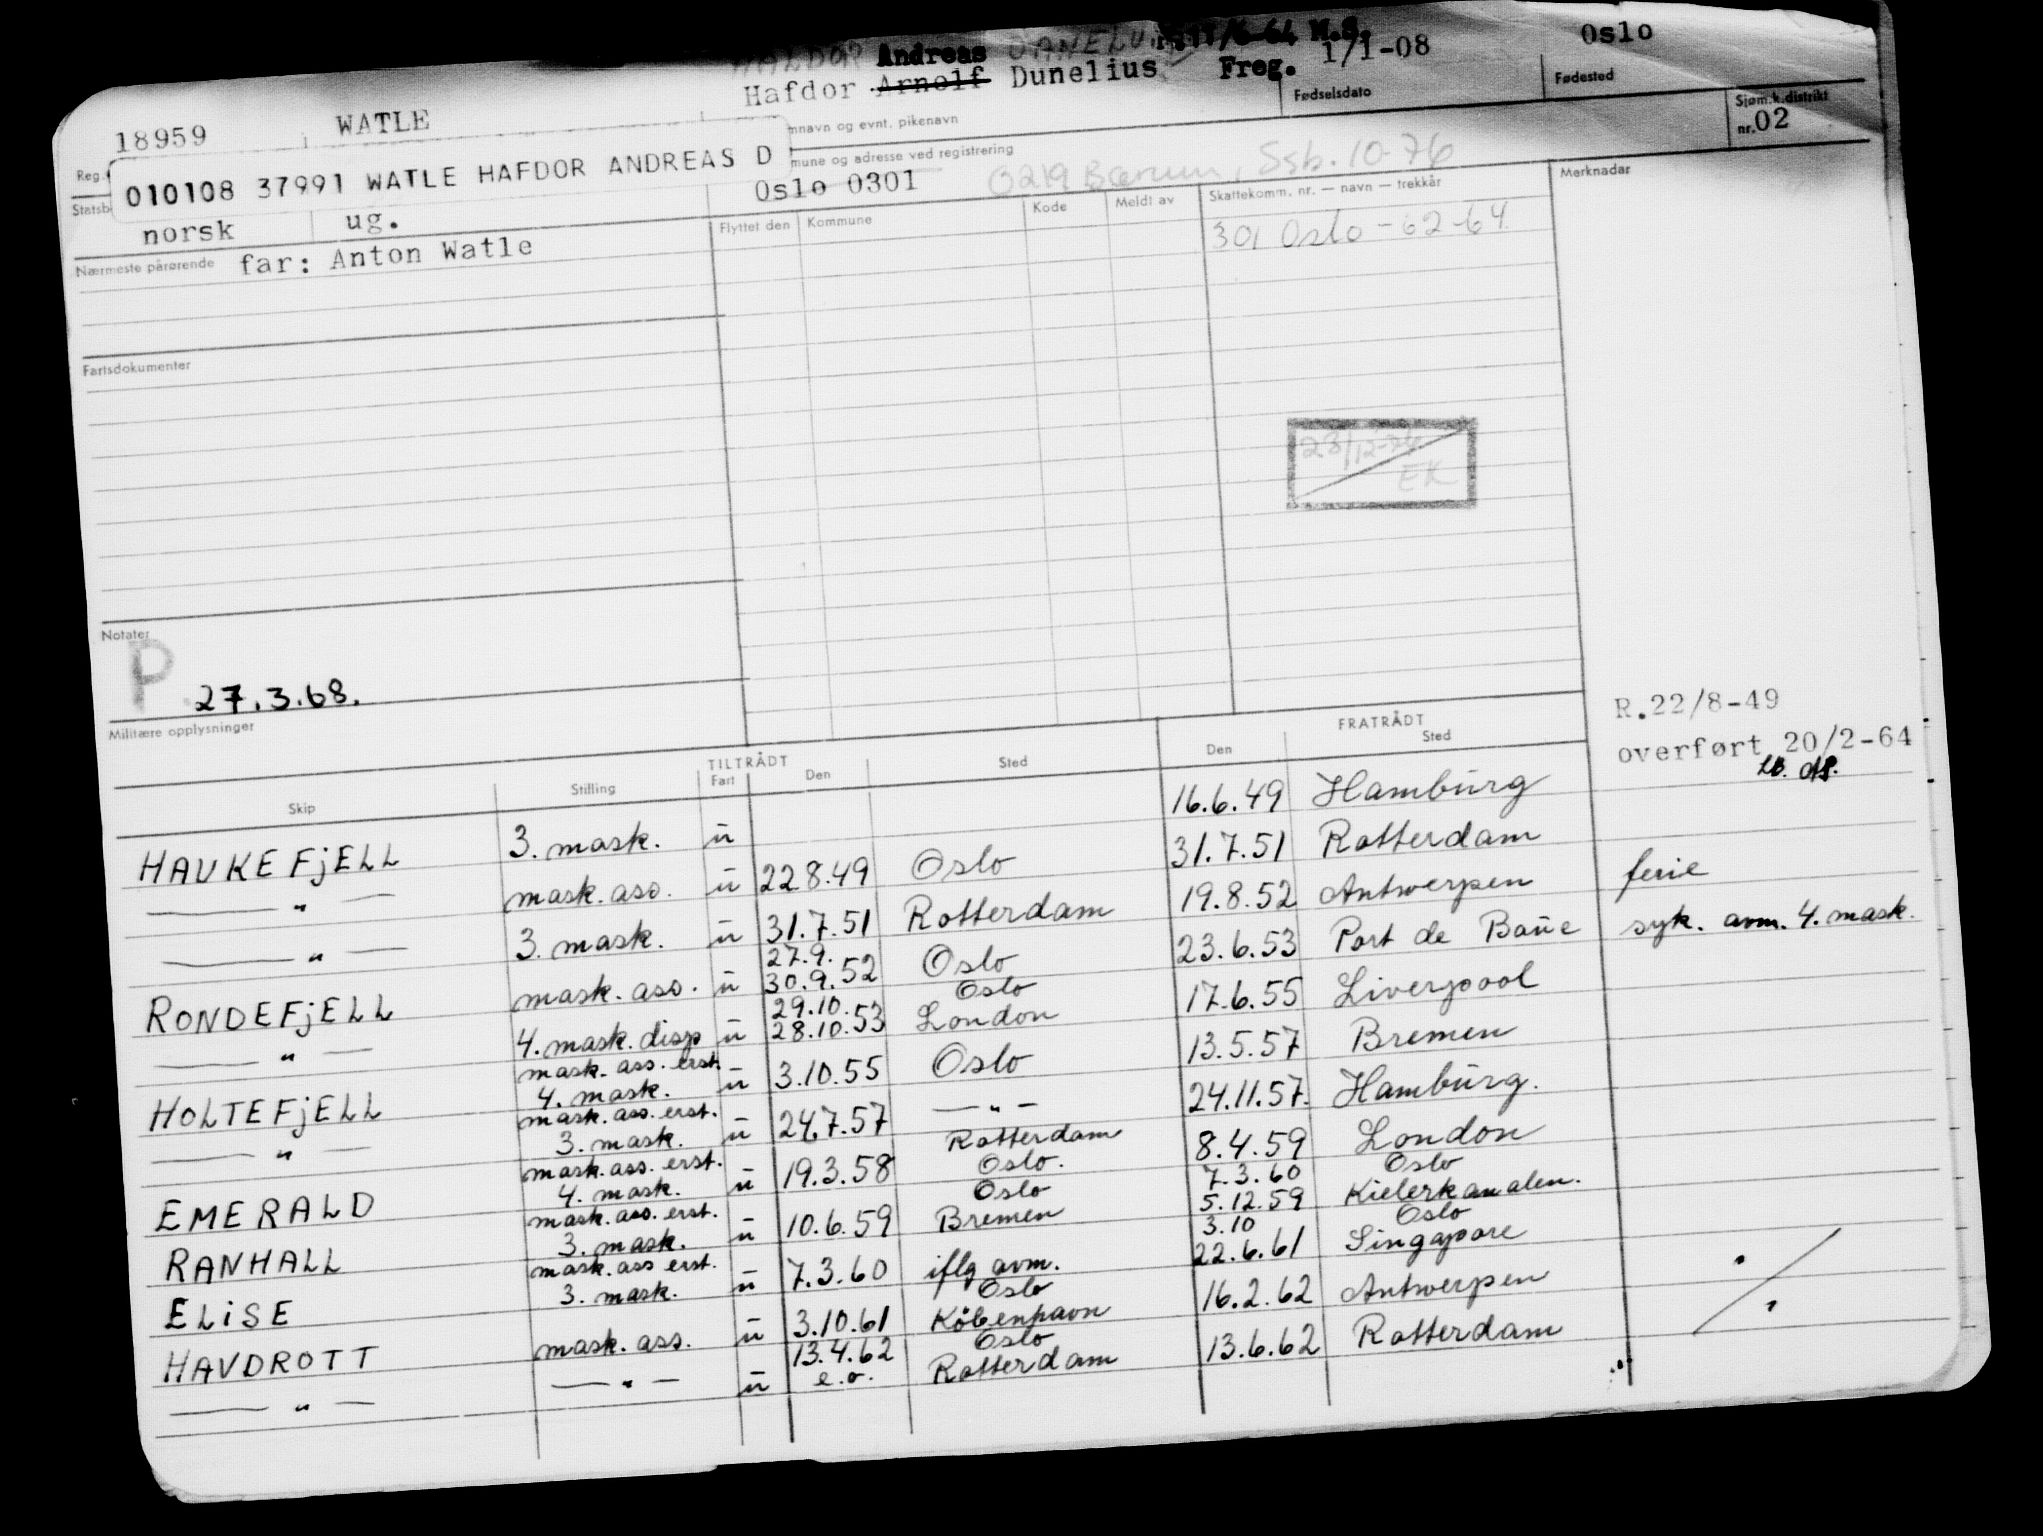 Andreas 11/6-64 M.S.
18959 WATLE Hafdor Arnolf Dunelius Freg. 1/1-08 Oslo
Fødselsdato Fødested
nnavn og evnt. pikenavn Sjøm.k.distrikt nr. 02
Reg. 010108 37991 WATLE HAFDOR ANDREAS D
mune og adresse ved registrering
Statsb norsk ug. Oslo 0301 0219 Bærum, Ssb. 10-76
Nærmeste pårørende far: Anton Watle
Flyttet den Kommune Kode Meldt av Skattekomm. nr. — navn — trekkår Merknadar
301 Oslo - 62-64
Fartsdokumenter
23/12-76
EK
Notater
P 27.3.68.
Militære opplysninger
R.22/8-49
overført 20/2-64
TILTRÅDT FRATRÅDT
Skip Stilling Fart Den Sted Den Sted
HAUKEFjELL 3. mask. u 16.6.49 Hamburg
— " — mask. ass. u 22.8.49 Oslo 31.7.51 Rotterdam
— " — 3. mask. u 31.7.51 Rotterdam 19.8.52 Antwerpen ferie
RONDEFjELL mask. ass. u 27.9. 30.9.52 Oslo 23.6.53 Port de Boue syk. avm. 4. mask.
— " — 4. mask. disp u 29.10. 28.10.53 Oslo London 17.6.55 Liverpool
HOLTEFjELL mask. ass. erst. 4. mask. u 3.10.55 Oslo 13.5.57 Bremen
— " — mask. ass. erst. 3. mask. u 24.7.57 — " — 24.11.57. Hamburg.
EMERALD mask. ass. erst. 4. mask. u 19.3.58 Rotterdam Oslo. 8.4.59 London
RANHALL mask. ass. erst. 3. mask. u 10.6.59 Oslo Bremen 7.3.60 5.12.59 Oslo Kielerkanalen.
ELiSE mask. ass erst. 3. mask. u 7.3.60 iflg avm. Oslo 3.10 22.6.61 Oslo Singapore
HAVDROTT mask. ass. u 3.10.61 København 16.2.62 Antwerpen
— " — — " — u 13.4.62 e.o. Oslo Rotterdam 13.6.62 Rotterdam